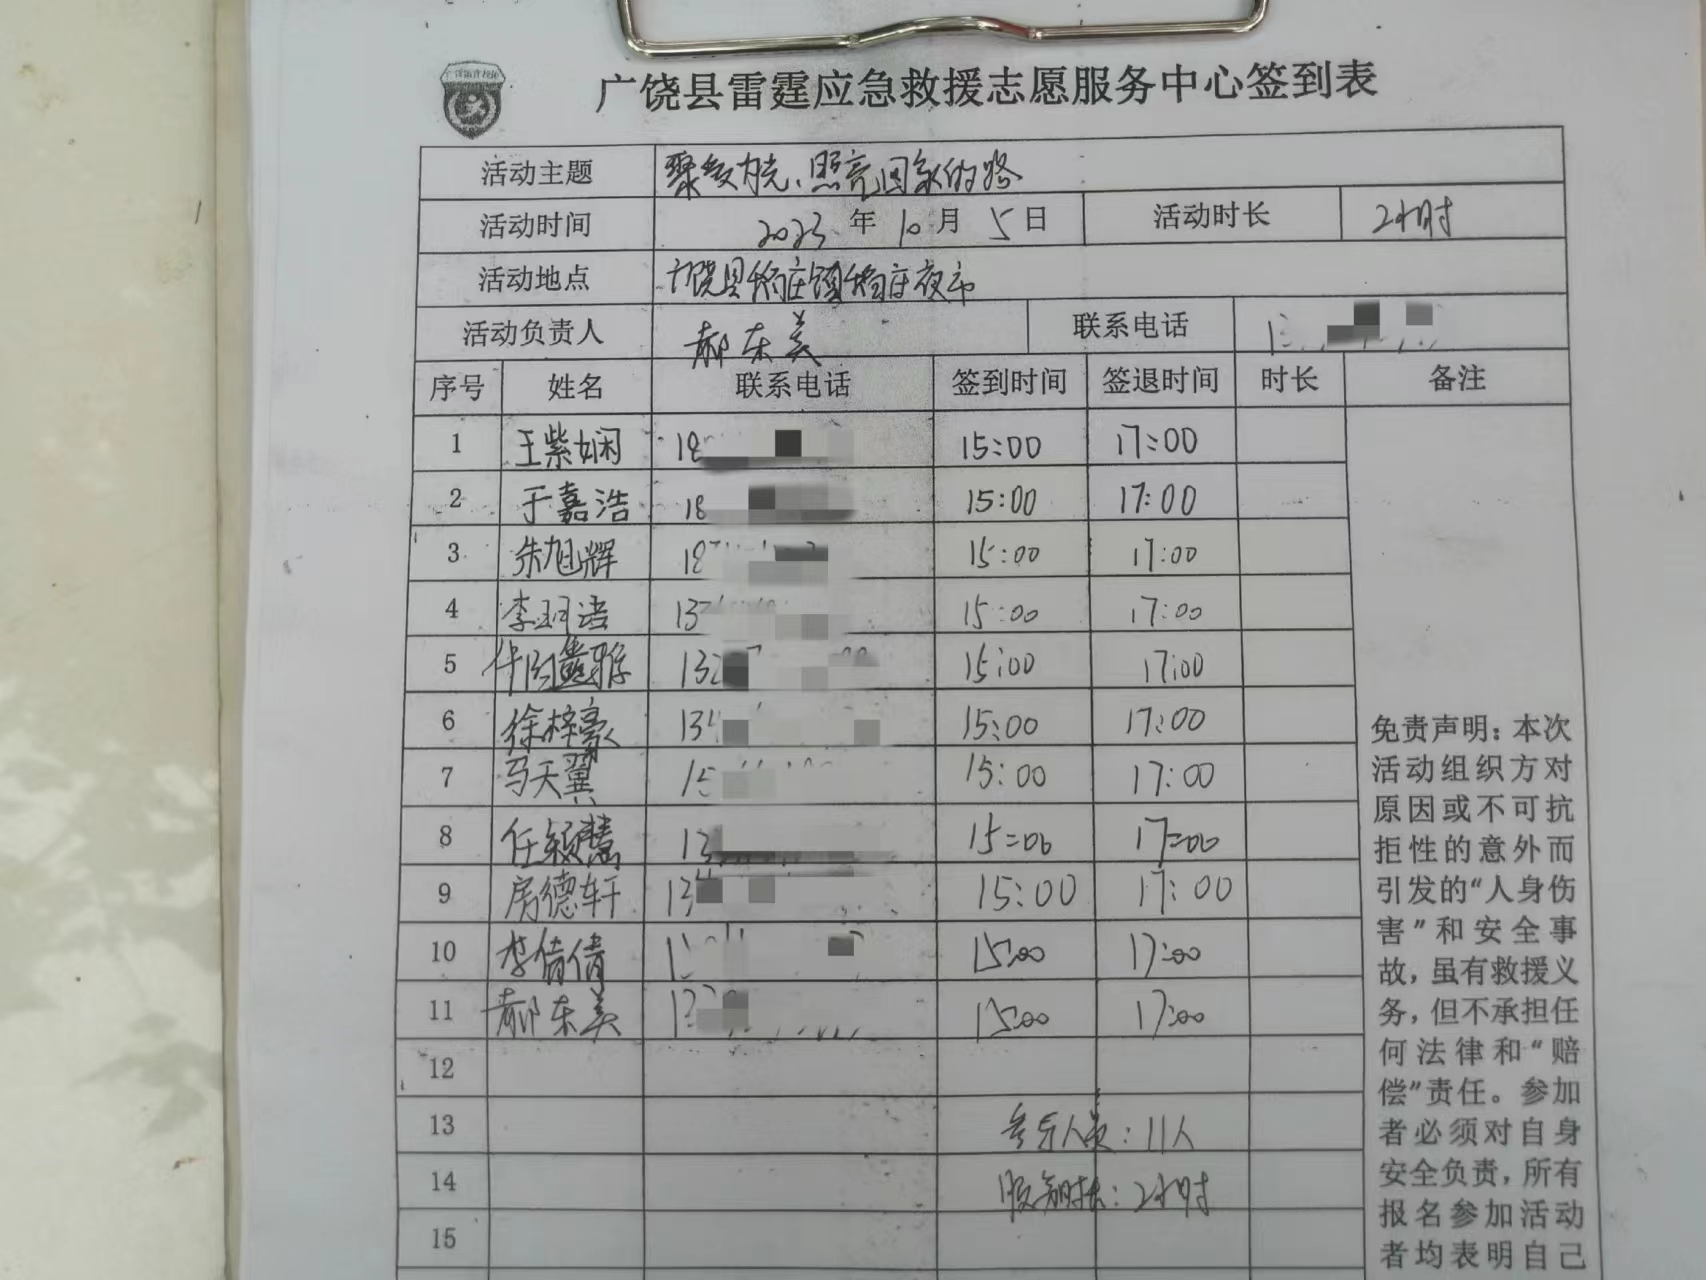 广饶县雷霆应急救援志愿服务中心签到表
活动主题 聚爱为光、照亮回家的路
活动时间 2023 年 10 月 5 日 活动时长 2小时
活动地点 广饶县稻庄镇稻庄夜市
活动负责人 郝东美 联系电话 1
序号 姓名 联系电话 签到时间 签退时间 时长 备注
1 王紫娴 18 15:00 17:00
2 于嘉浩 18 15:00 17:00
3 朱旭辉 18 15:00 17:00
4 李玥语 13 15:00 17:00
5 13 15:00 17:00
6 徐梓豪 13 15:00 17:00
7 马天翼 15 15:00 17:00
8 任颖慧 13 15:00 17:00
9 房德轩 13 15:00 17:00
10 李倩倩 1 15:00 17:00
11 郝东美 13 15:00 17:00
12
13 参与人员:11人
14 服务时长:2小时
15
免责声明:本次
活动组织方对
原因或不可抗
拒性的意外而
引发的“人身伤
害”和安全事
故,虽有救援义
务,但不承担任
何法律和“赔
偿”责任。参加
者必须对自身
安全负责,所有
报名参加活动
者均表明自己